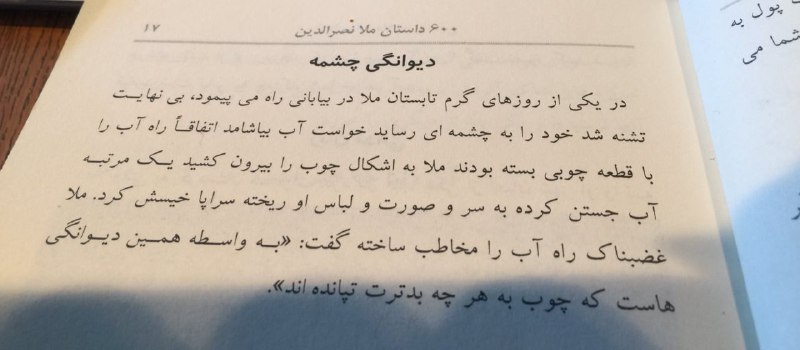 ۶۰۰ داستان ملا نصرالدین ۱۷
دیوانگی چشمه
در یکی از روزهای گرم تابستان ملا در بیابانی راه می پیمود، بی نهایت
تشنه شد خود را به چشمه ای رساید خواست آب بیاشامد اتفاقاً راه آب را
با قطعه چوبی بسته بودند ملا به اشکال چوب را بیرون کشید یک مرتبه
آب جستن کرده به سر و صورت و لباس او ریخته سراپا خیسش کرد. ملا
غضبناک راه آب را مخاطب ساخته گفت: «به واسطه همین دیوانگی
هاست که چوب به هر چه بدترت تپانده اند».
پول به
شما می